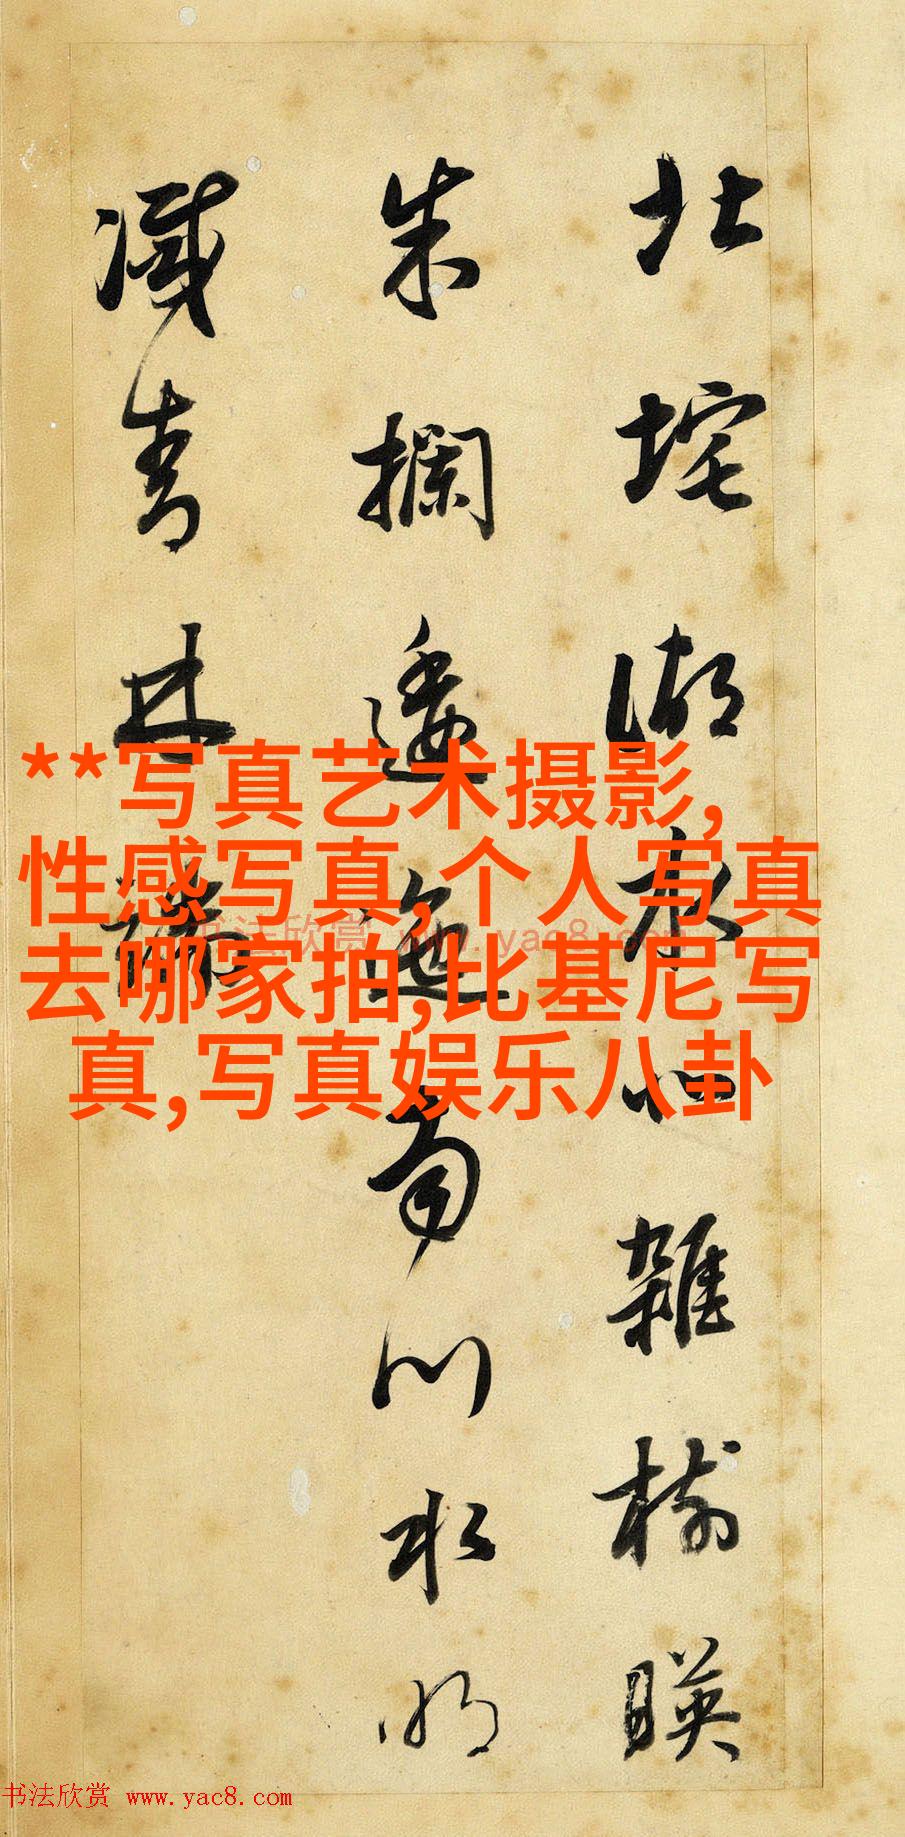 北垞湖水北雜樹暎
朱欄逶迤南川水明
滅青林端
**写真艺术摄影,
性感写真,个人写真
去哪家拍,比基尼写
真,写真娱乐八卦
书法欣赏 www.yac8.com
书法欣赏 www.yac8.com